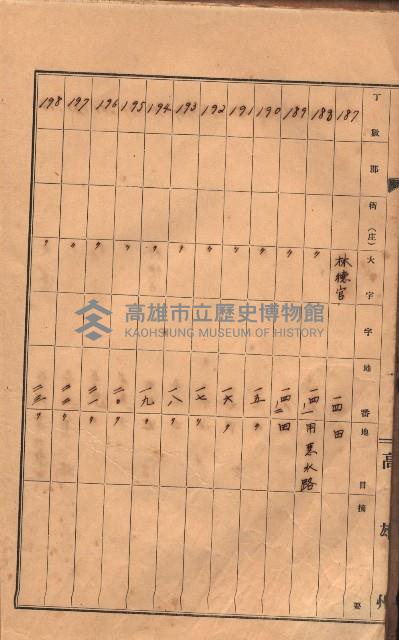 丁數 郡 街(庄) 大字 字 地番 地目 摘要
187 林德官 一四 田
188 〃 一四ノ一 用悪水路
189 〃 一四ノ二 田
190 〃 一五 〃
191 〃 一六 〃
192 〃 一七 〃
193 〃 一八 〃
194 〃 一九 〃
195 〃 二〇 〃
196 〃 二一 〃
197 〃 〃
198 〃 〃
高雄州
高雄市立歷史博物館
KAOHSIUNG MUSEUM OF HISTORY